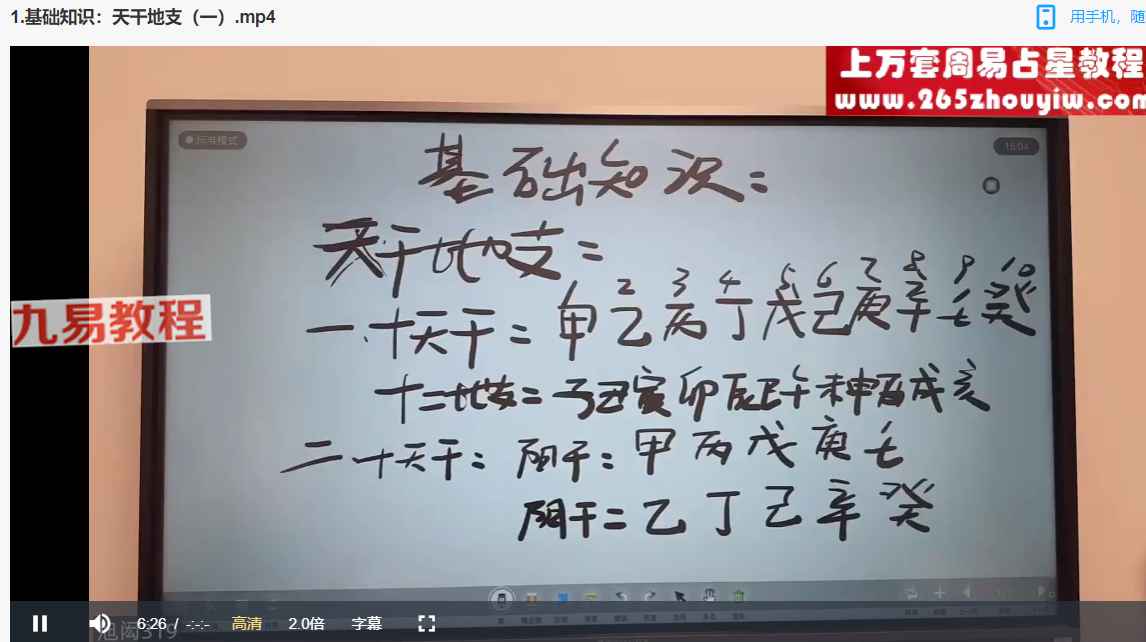 1.基础知识：天干地支（一）.mp4
用手机，随
上万套周易占星教程
www.265zhouyiw.com
16:04
基础知识：
天干地支：
1 2 3 4 5 6 7 8 9 10
一、十天干：甲乙丙丁戊己庚辛壬癸
九易教程
十二地支：子丑寅卯辰巳午未申酉戌亥
二十天干：阳干：甲丙戊庚壬
阴干：乙丁己辛癸
6:26 / -:-:- 高清 2.0倍 字幕